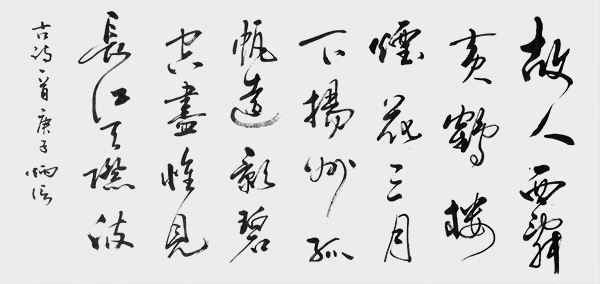 故人西辭
黄鶴樓
煙花三月
下揚州孤
帆遠影碧
空盡惟見
長江天際流
古诗一首庚子炳